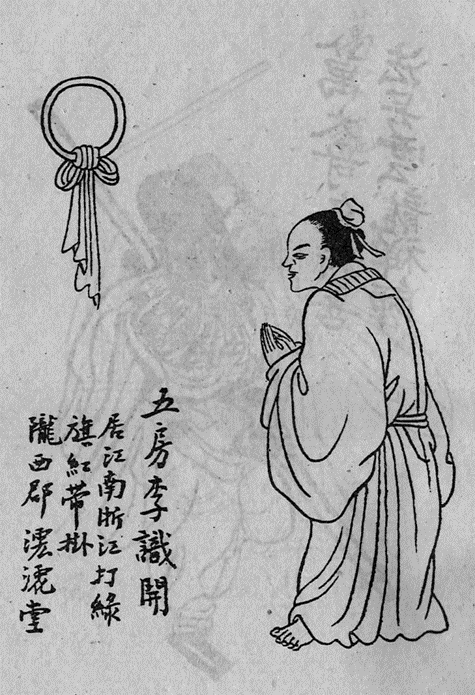 五房李識開
居江南浙江打綠
旗紅帶掛
隴西郡堂